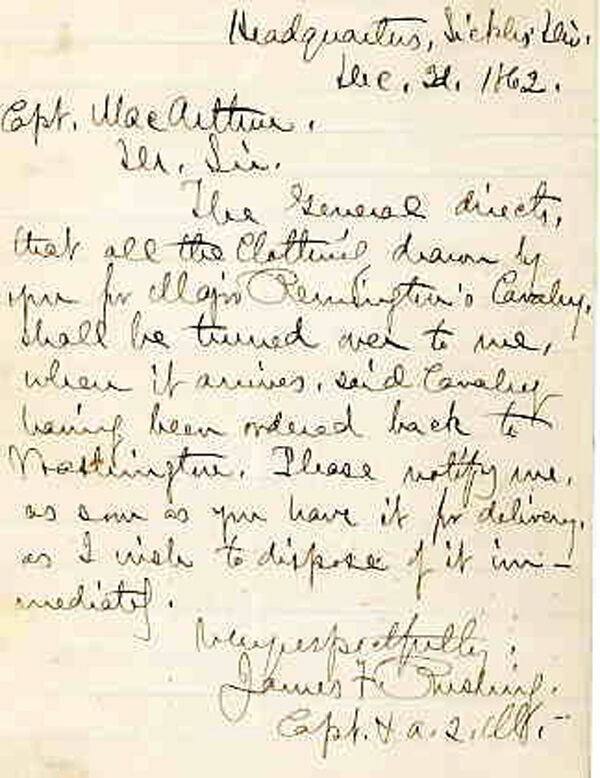 Headquarters, Sickles' Div.
Dec. 2d. 1862.
Capt. MacArthur.
Dr. Sir.
The General directs,
that all the Clothing drawn by
you for Major Remington's Cavalry,
shall be turned over to me,
when it arrives, said Cavalry
having been ordered back to
Washington. Please notify me,
as soon as you have it for delivery,
as I wish to dispose of it im-
mediately.
Very respectfully,
James F. Rusling.
Capt. & A. Q. M.